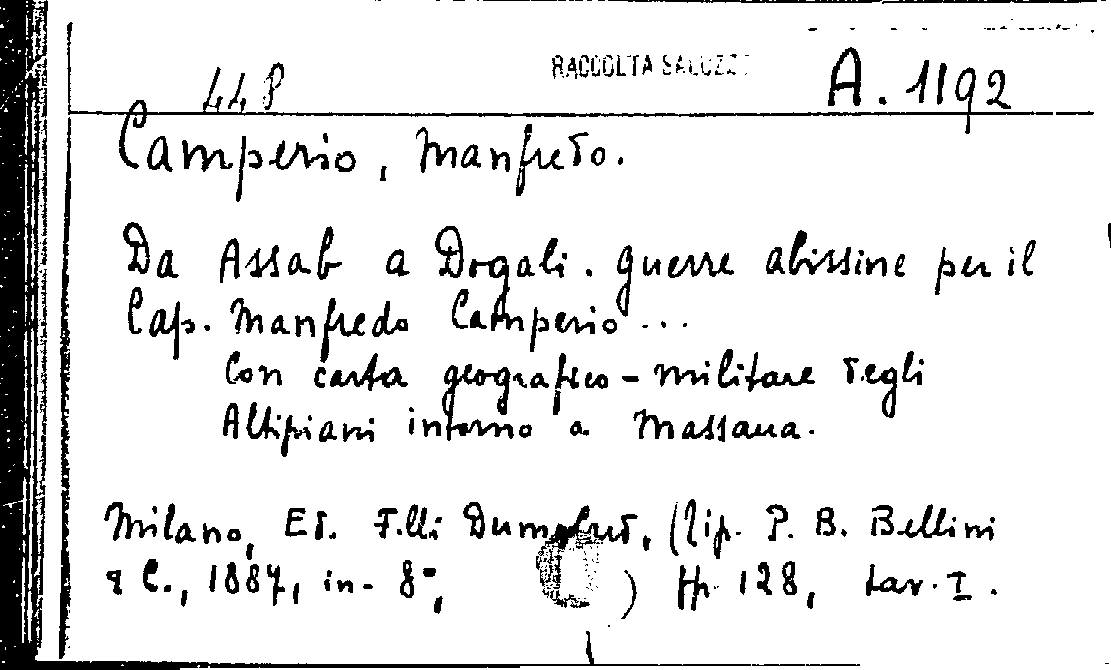 448 RACCOLTA SALUZZO A. 1192
Camperio, Manfredo.
Da Assab a Dogali. Guerre abissine per il
Cap. Manfredo Camperio...
Con carta geografico-militare degli
Altipiani intorno a Massaua.
Milano, Ed. F.lli Dumolard, (Tip. P. B. Bellini
& C., 1887, in-8°, ) pp. 128, tav. I.